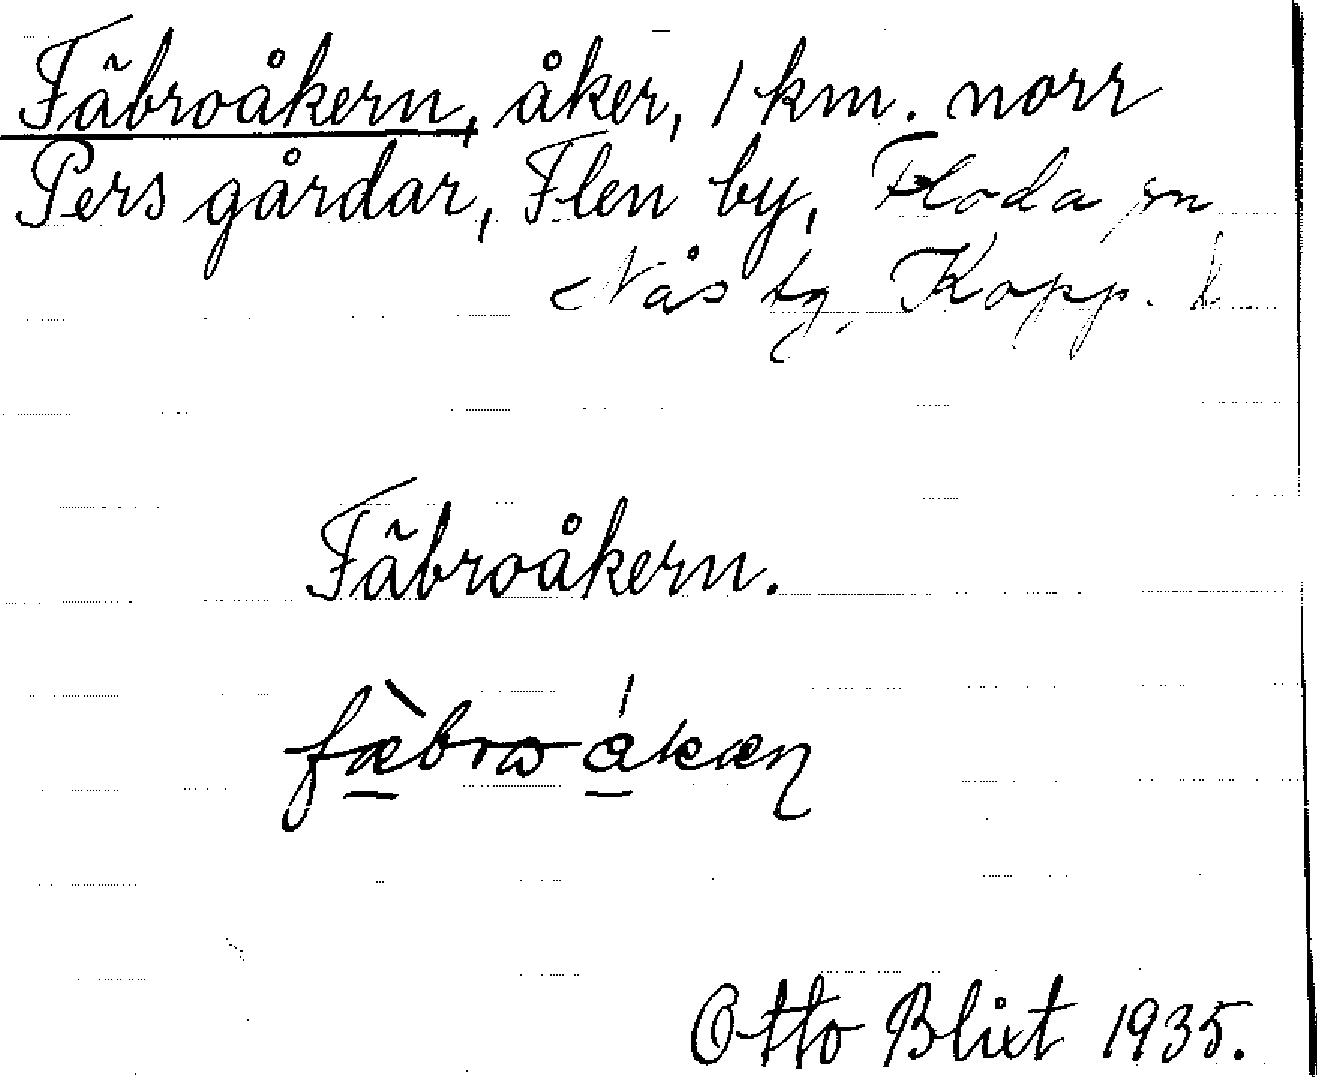 Fäbroåkern, åker, 1 km. norr
Pers gårdar, Flen by, Floda sn
Nås tg, Kopp. l
Fäbroåkern.
Otto Blixt 1935.